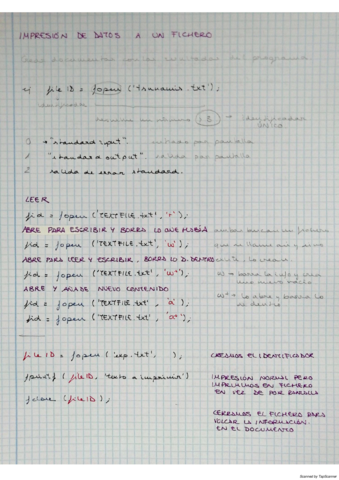 IMPRESIÓN DE DATOS A UN FICHERO
ej file ID = fopen ('tranquis.txt');
0 → "standard input".
1 "standard output" salida por pantalla
2 salida de error standard.
LEER
fid = fopen ('TEXTFILE.txt', 'r');
ABRE PARA ESCRIBIR Y BORRA LO QUE HABÍA
fid = fopen ('TEXTFILE.txt', 'w');
ABRE PARA LEER Y ESCRIBIR, BORRA LO D. DENTRO
fid = fopen ('TEXTFILE.txt', 'w+');
w → borra lo viejo y crea
uno nuevo vacío
ABRE Y AÑADE NUEVO CONTENIDO
fid = fopen ('TEXTFILE.txt', 'a');
w+ → lo abre y borra lo
de dentro
fid = fopen ('TEXTFILE.txt', 'a+');
file ID = fopen ('exp.txt', );
CREAMOS EL IDENTIFICADOR
fprintf (file ID, 'texto a imprimir')
IMPRESIÓN NORMAL PERO
IMPRIMIMOS EN FICHERO
EN VEZ DE POR PANTALLA
fclose (file ID);
CERRAMOS EL FICHERO PARA
VOLCAR LA INFORMACIÓN
EN EL DOCUMENTO
Scanned by TapScanner